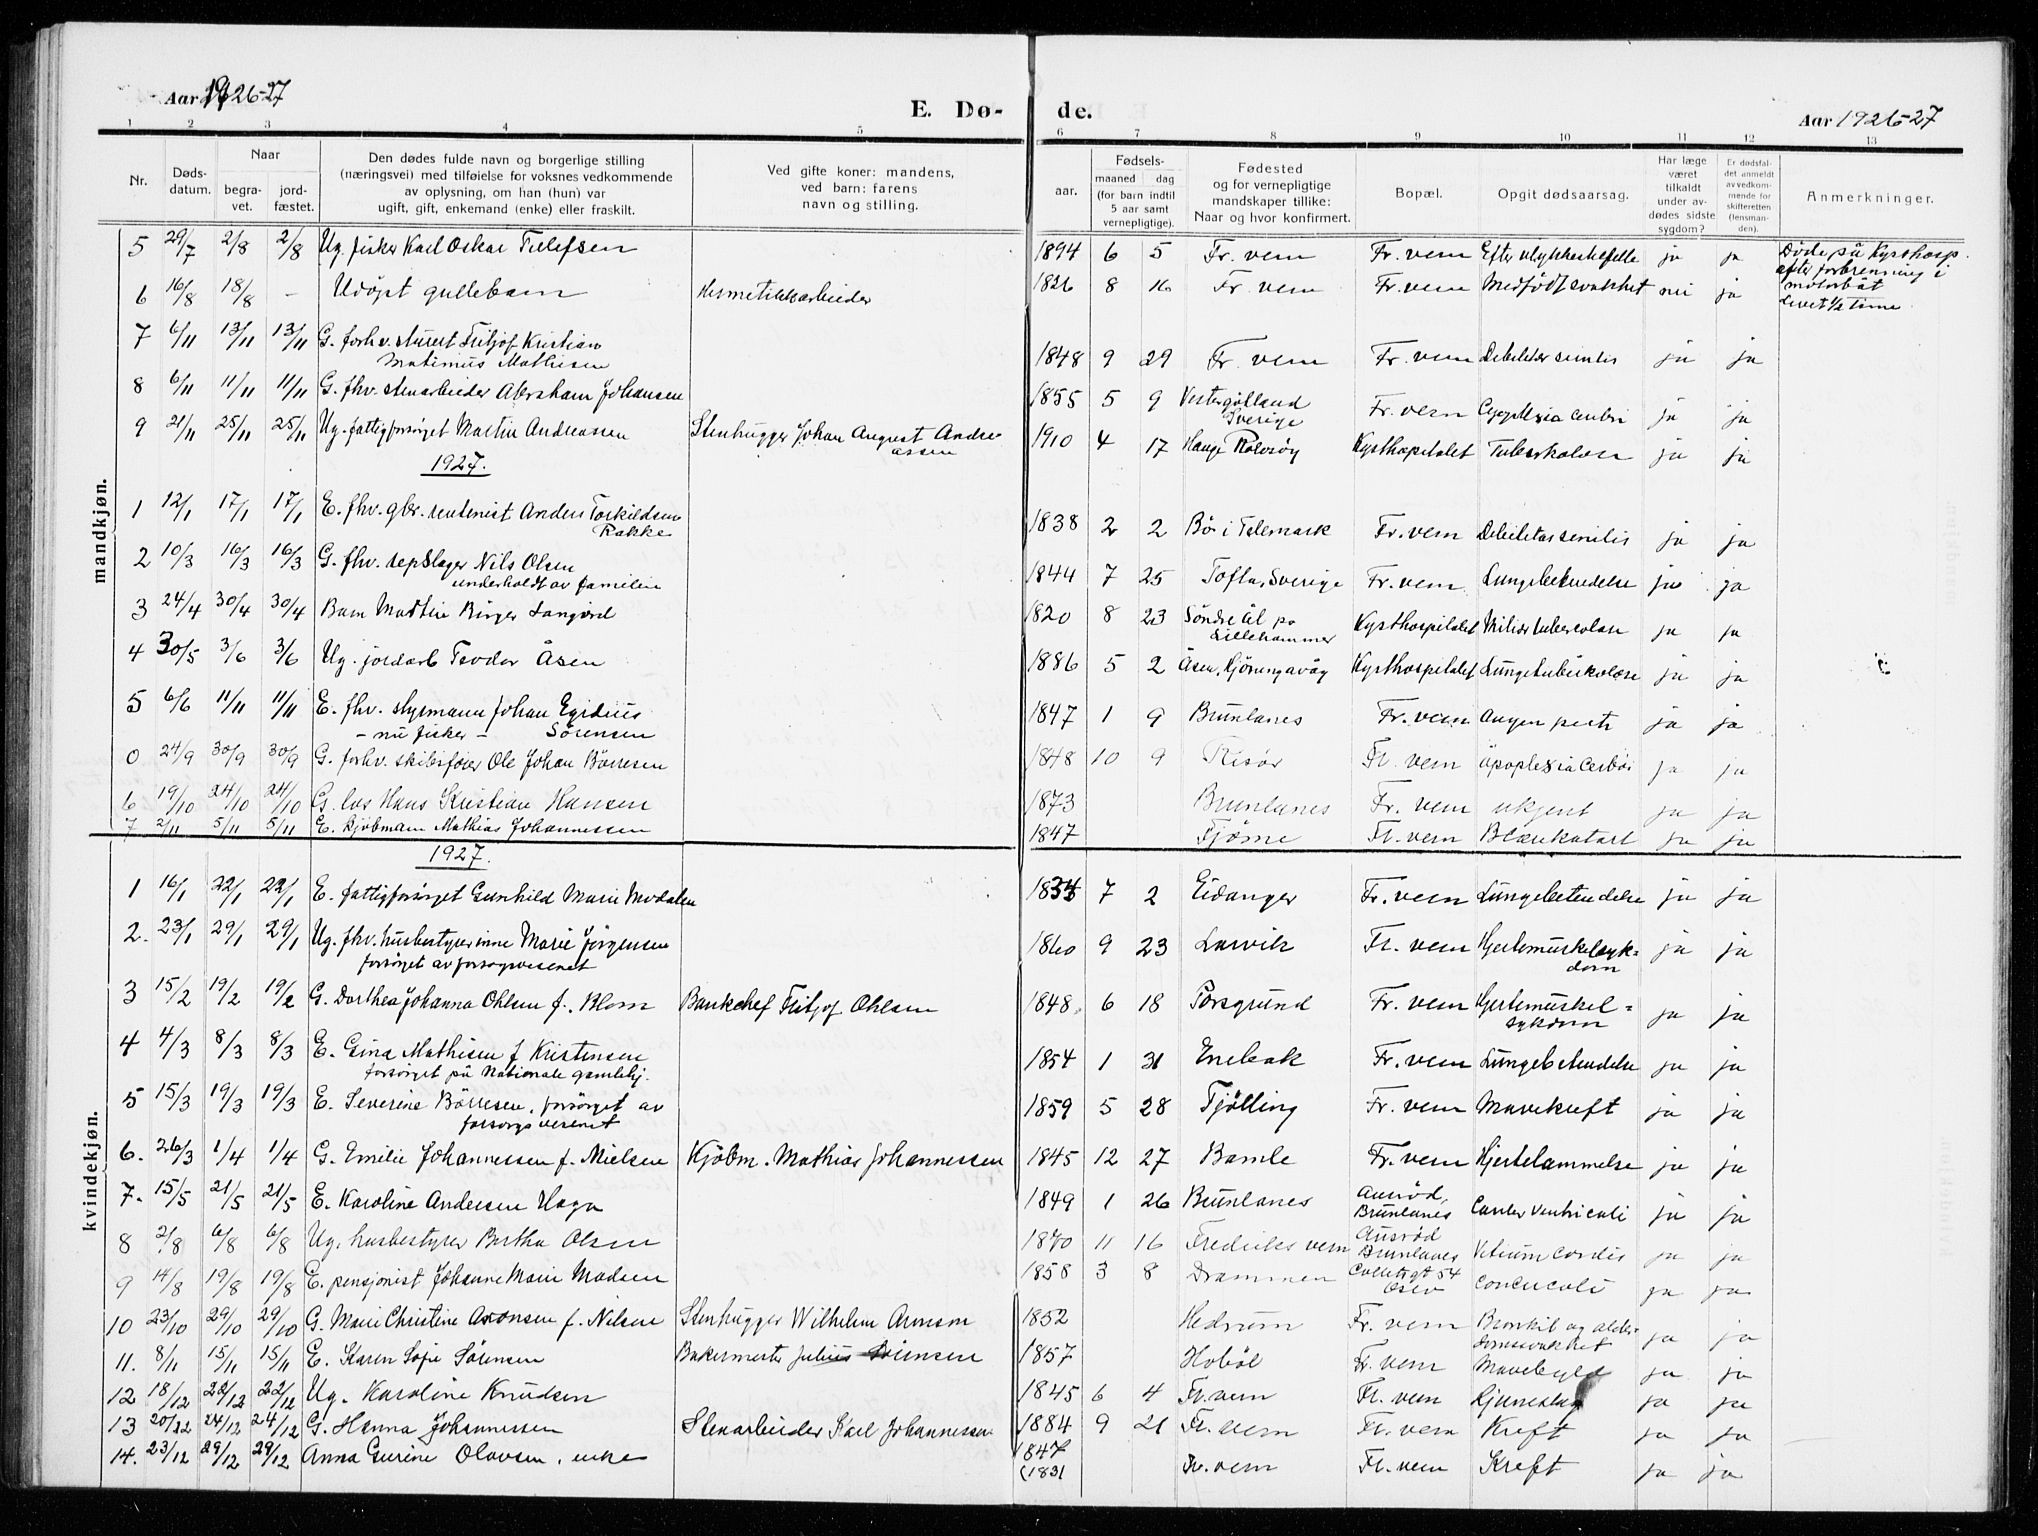 Aar 1926-27
E. Dø-
de.
Aar 1926-27
1 2 3 4 5 6 7 8 9 10 11 12 13
Nr.
Døds-
datum.
Naar
begra-
vet.
jord-
fæstet.
Den dødes fulde navn og borgerlige stilling
(næringsvei) med tilføielse for voksnes vedkommende
av oplysning, om han (hun) var
ugift, gift, enkemand (enke) eller fraskilt.
Ved gifte koner: mandens,
ved barn: farens
navn og stilling.
Fødsels-
aar.
maaned dag
(for barn indtil
5 aar samt
vernepligtige).
Fødested
og for vernepligtige
mandskaper tillike:
Naar og hvor konfirmert.
Bopæl.
Opgit dødsaarsag.
Har læge
været
tilkaldt
under av-
dødes sidste
sygdom?
Er dødsfal-
det anmeldt
av vedkom-
mende for
skifteretten
(lensman-
den).
Anmerkninger.
mandkjøn.
5 29/7 2/8 2/8 Ug. fisker Karl Oskar Tellefsen 1894 6 5 Fr. vern Fr. vern Efter ulykkestilfelle ja ja Døde på Kysthosp.
efter forbrenning i
motorbåt
6 16/8 18/8 - Udøpt guttebarn Hermetikkarbeider 1926 8 16 Fr. vern Fr. vern Medfødt svakhet nei ja Levet 1/2 time
7 6/11 13/11 13/11 G. forhv. stuert Fritjof Kristian
Matinius Mathisen 1848 9 29 Fr. vern Fr. vern Debilitas senilis ja ja
8 6/11 11/11 11/11 G. fhv. stenarbeider Abraham Johansen 1855 5 9 Vestergötland
Sverige Fr. vern Apoplexia cerebri ja ja
9 21/11 25/11 25/11 Ug. fattigforsørget Martin Andreassen Stenhugger Johan August Andre-
assen 1910 4 17 Hauge Rolvsøy Kysthospitalet Tuberkulose ja ja
1927.
1 12/1 17/1 17/1 E. fhv. gbr. rentenist Anders Torkildsen
Rakke 1838 2 2 Bø i Telemark Fr. vern Debilitas senilis ja ja
2 10/3 16/3 16/3 G. fhv. repslager Nils Olsen
underholdt av familien 1844 7 25 Tofta, Sverige Fr. vern Lungebetendelse ja ja
3 24/4 30/4 30/4 Barn Martin Birger Langård 1820 8 23 Søndre Ål pr
Lillehammer Kysthospitalet Miliær tuberculose ja ja
4 30/5 3/6 3/6 Ug. jordarb Teodor Åsen 1886 5 2 Åsen, Hjørungavåg Kysthospitalet Lungetuberkulose ja ja
5 6/6 11/11 11/11 E. fhv. styrmann Johan Egidius
- nu fisker - Sørensen 1847 1 9 Brunlanes Fr. vern Angin pect ja ja
0 24/9 30/9 30/9 G. forhv. skibsfører Ole Johan Børresen 1848 10 9 Risør Fr. vern Apoplexia Cerbri ja ja
6 19/10 24/10 24/10 G. los Hans Kristian Hansen 1873 Brunlanes Fr. vern ukjent ja ja
7 2/11 5/11 5/11 E. kjøbmann Mathias Johannessen 1847 Tjøme Fr. vern Blærekatarr ja ja
kvindekjøn.
1927.
1 16/1 22/1 22/1 E. fattigforsørget Gunhild Marie Modalen 1834 7 2 Eidanger Fr. vern Lungebetendelse ja ja
2. 23/1 29/1 29/1 Ug. fhv. husbestyrerinne Marie Jørgensen
forsørget av forsorgsvesenet 1860 9 23 Larvik Fr. vern Hjertemuskelsyk-
dom ja ja
3 15/2 19/2 19/2 G. Dorthea Johanna Ohlsen f. Blom Bankchef Fritjof Ohlsen 1848 6 18 Porsgrund Fr. vern Hjertemuskel-
sykdom ja ja
4 4/3 8/3 8/3 E. Gina Mathisen f Kristensen
forsørget på Nationale gamlehj. 1854 1 31 Enebak Fr. vern Lungebetendelse ja ja
5 15/3 19/3 19/3 E. Severine Børresen, forsørget av
forsorgsvesenet 1859 5 28 Tjølling Fr. vern Mavekreft ja ja
6. 26/3 1/4 1/4 G. Emilie Johannessen f. Nielsen Kjøbm. Mathias Johannessen 1845 12 27 Bamle Fr. vern Hjertelammelse ja ja
7. 15/5 21/5 21/5 E. Karoline Andersen Haga 1849 1 26 Brunlanes Ausrød,
Brunlanes Cancer ventriculi ja ja
8 2/8 6/8 6/8 Ug. husbestyrer Bertha Olsen 1870 11 16 Fredriksvern Ausrød
Brunlanes Vitium cordis ja ja
9 14/8 19/8 19/8 E. pensjonist Johanne Marie Madsen 1858 3 8 Drammen Collettsgt 54
Oslo ja ja
10 23/10 29/10 29/10 G. Marie Christine Aronsen f. Nilsen Stenhugger Wilhelm Aronson 1852 Hedrum Fr. vern Bronkit og alder-
domssvakhet ja ja
11. 8/11 15/11 15/11 E. Karen Sofie Sørensen Bakermester Julius Sørensen 1857 Hobøl Fr. vern Mavebyld ja ja
12 18/12 22/12 22/12 Ug. Karoline Knudsen 1845 6 4 Fr. vern Fr. vern Hjerneslag ja ja
13 20/12 24/12 24/12 G. Hanna Johannessen Stenarbeider Karl Johannessen 1884 9 21 Fr. vern Fr. vern Kreft ja ja
14. 23/12 29/12 29/12 Anna Gurine Olavsen, enke 1847
(1831 Fr. vern Fr. vern Kreft ja ja